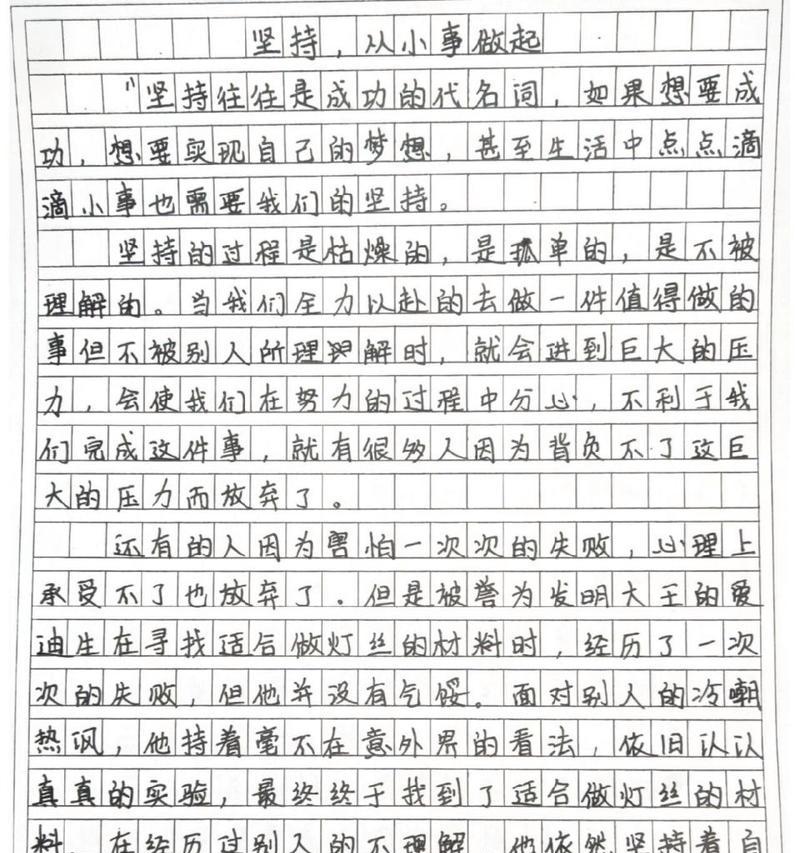 坚持，从小事做起
"坚持往往是成功的代名词，如果想要成
功，想要实现自己的梦想，甚至生活中点点滴
滴小事也需要我们的坚持。
坚持的过程是枯燥的，是孤单的，是不被
理解的。当我们全力以赴的去做一件值得做的
事但不被别人所理解时，就会迸到巨大的压
力，会使我们在努力的过程中分心，不利于我
们完成这件事，就有很多人因为背负不了这巨
大的压力而放弃了。
还有的人因为害怕一次次的失败，心理上
承受不了也放弃了．但是被誉为发明大王的爱
迪生在寻找适合做灯丝的材料时，经历了一次
次的失败，但他并没有气馁。面对别人的冷嘲
热讽，他持着毫不在意外界的看法，依旧认认
真真的实验，最终终于找到了适合做灯丝的材
料。在经历过别人的不理解，他依然坚持着自